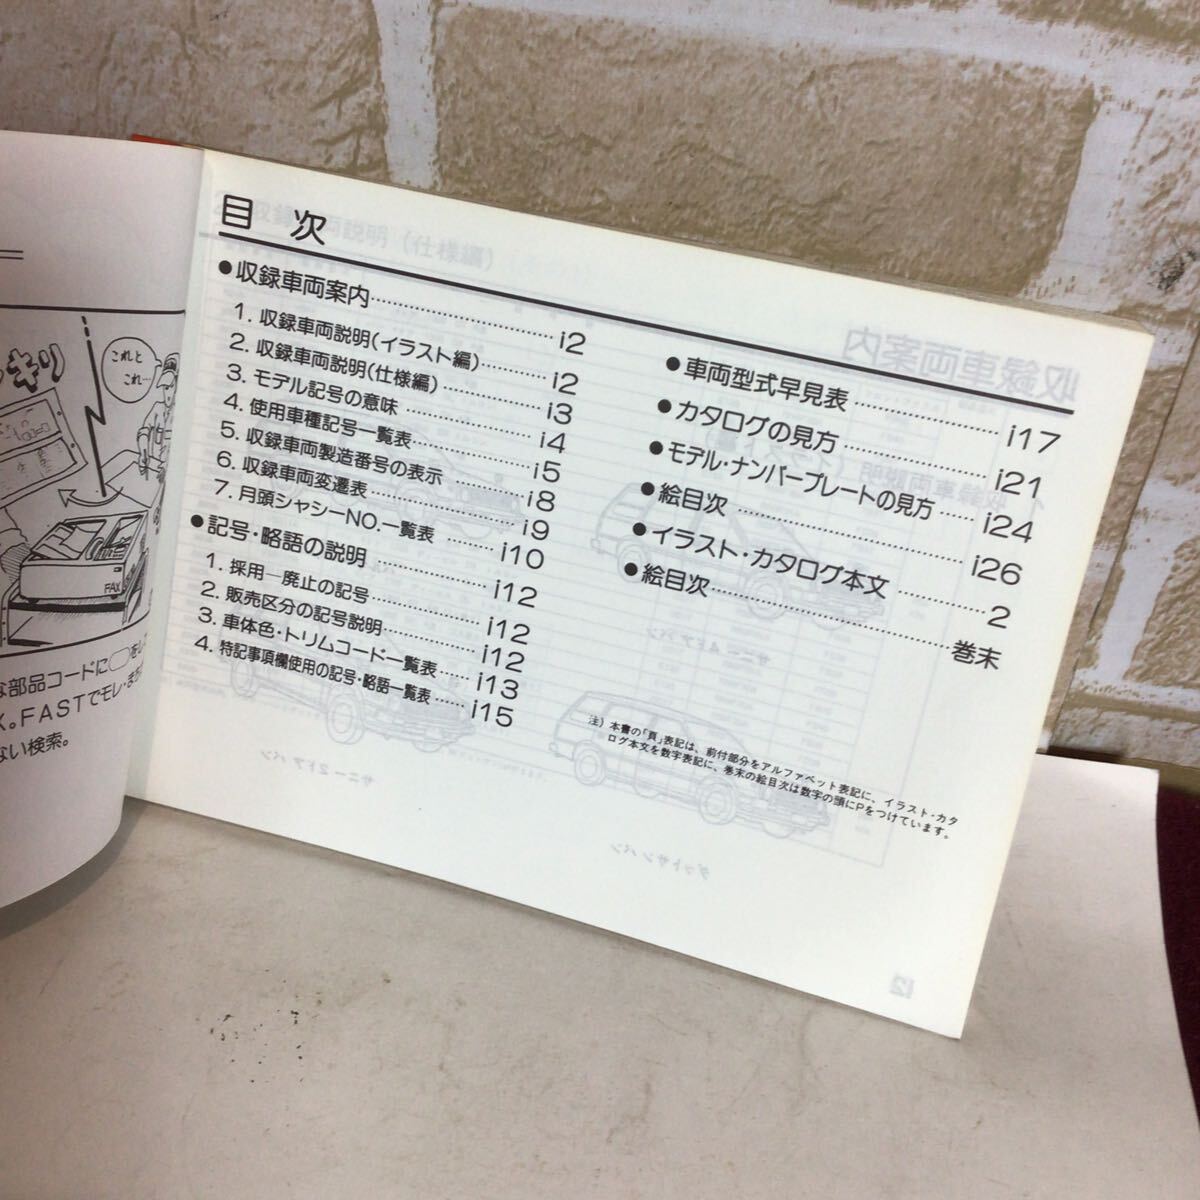 キリ
これと
これ…
FAX
な部品コードに
をし
。FASTでモレ・まち
ない検索。
目 次
●収録車両案内……i2
1. 収録車両説明(イラスト編)……i2
2. 収録車両説明(仕様編)……i3
3. モデル記号の意味……i4
4. 使用車種記号一覧表……i5
5. 収録車両製造番号の表示……i8
6. 収録車両変遷表……i9
7. 月頭シャシーNO.一覧表……i10
●記号・略語の説明……i12
1. 採用―廃止の記号……i12
2. 販売区分の記号説明……i12
3. 車体色・トリムコード一覧表……i13
4. 特記事項欄使用の記号・略語一覧表……i15
●車両型式早見表……i17
●カタログの見方……i21
●モデル・ナンバープレートの見方……i24
●絵目次……i26
●イラスト・カタログ本文……2
●絵目次……巻末
注) 本書の「頁」表記は、前付部分をアルファベット表記に、イラスト・カタ
ログ本文を数字表記に、巻末の絵目次は数字の頭にPをつけています。
収録車両案内
2. 収録車両説明(仕様編)
サニー4ドアバン
サニー2ドアバン
ダットサンバン
i2